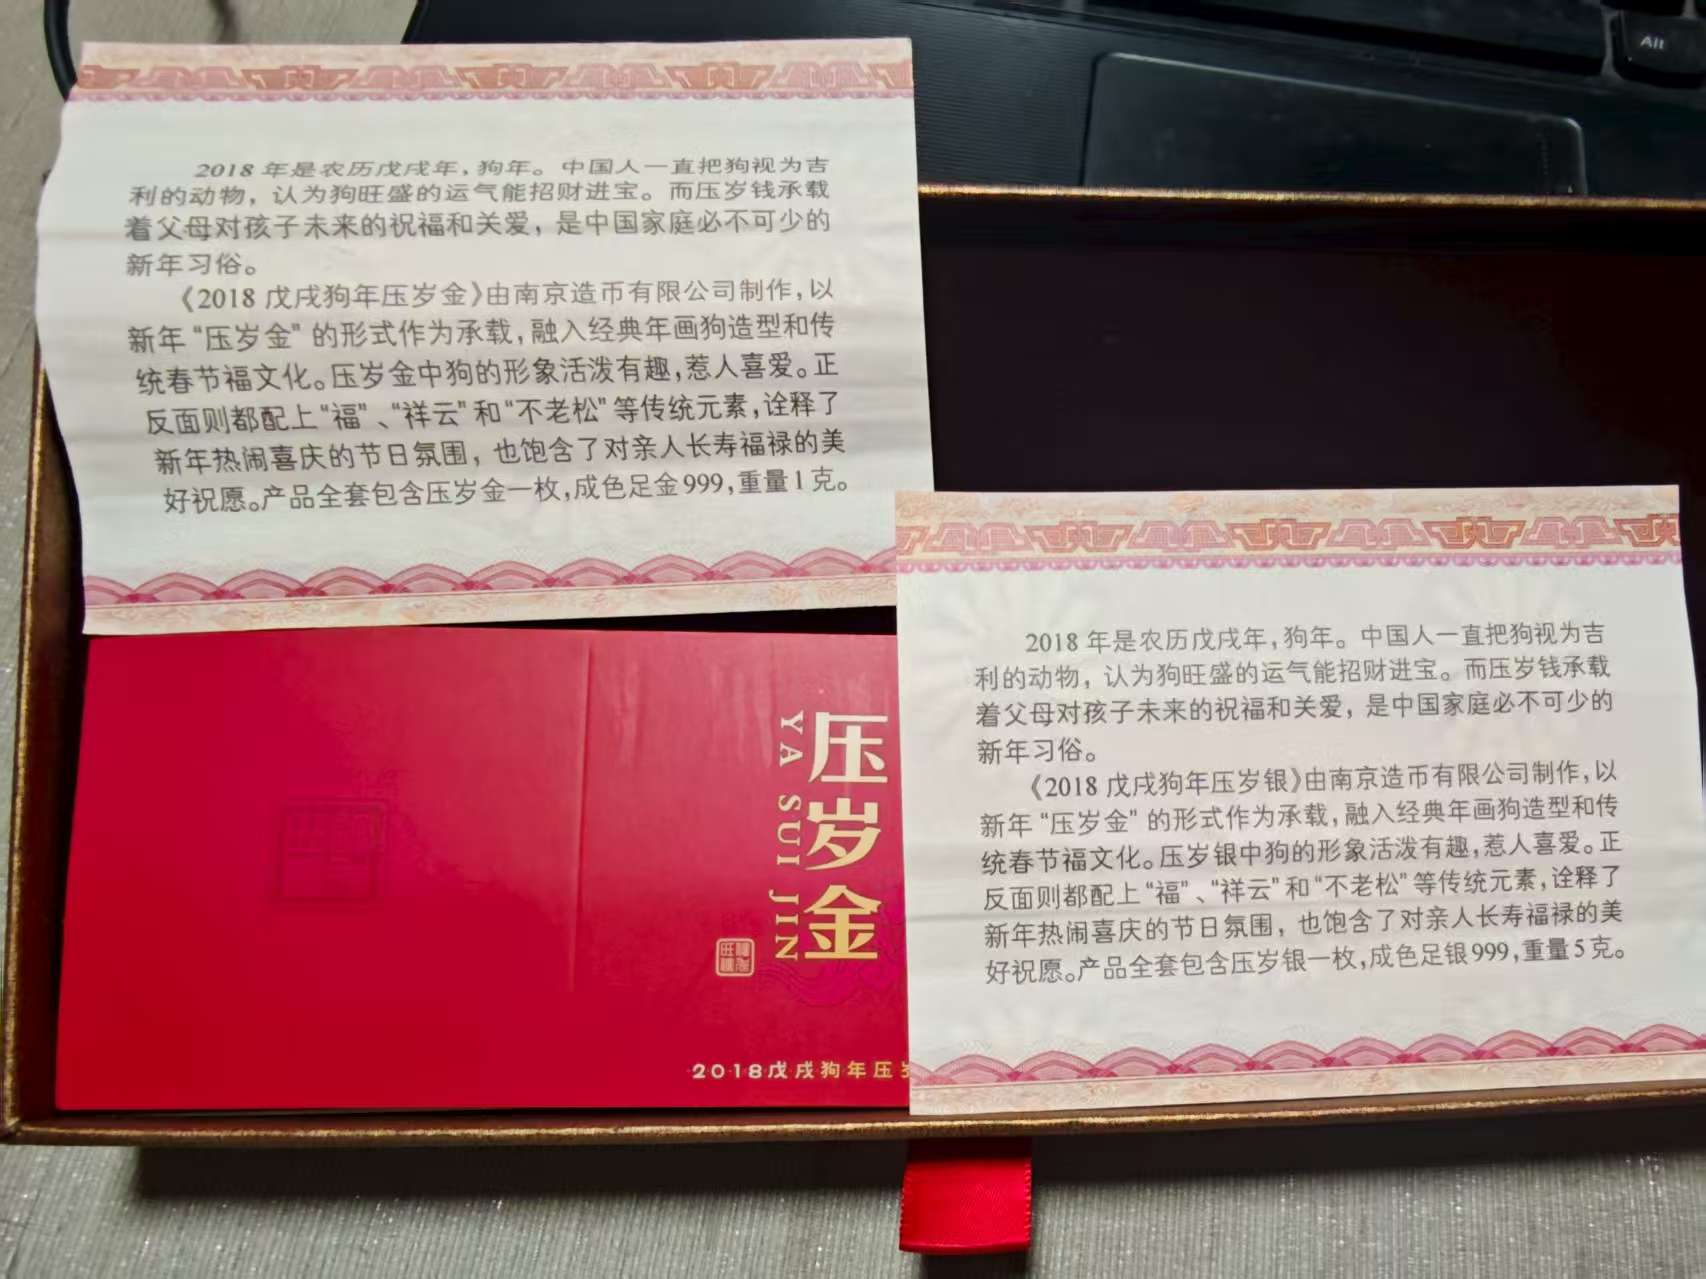 Alt
2018 年是农历戊戌年，狗年。中国人一直把狗视为吉
利的动物，认为狗旺盛的运气能招财进宝。而压岁钱承载
着父母对孩子未来的祝福和关爱，是中国家庭必不可少的
新年习俗。
《2018 戊戌狗年压岁金》由南京造币有限公司制作，以
新年“压岁金”的形式作为承载，融入经典年画狗造型和传
统春节福文化。压岁金中狗的形象活泼有趣，惹人喜爱。正
反面则都配上“福”、“祥云”和“不老松”等传统元素，诠释了
新年热闹喜庆的节日氛围，也饱含了对亲人长寿福禄的美
好祝愿。产品全套包含压岁金一枚，成色足金999，重量1克。
压岁金
YA SUI JIN
2018戊戌狗年压
2018 年是农历戊戌年，狗年。中国人一直把狗视为吉
利的动物，认为狗旺盛的运气能招财进宝。而压岁钱承载
着父母对孩子未来的祝福和关爱，是中国家庭必不可少的
新年习俗。
《2018 戊戌狗年压岁银》由南京造币有限公司制作，以
新年“压岁金”的形式作为承载，融入经典年画狗造型和传
统春节福文化。压岁银中狗的形象活泼有趣，惹人喜爱。正
反面则都配上“福”、“祥云”和“不老松”等传统元素，诠释了
新年热闹喜庆的节日氛围，也饱含了对亲人长寿福禄的美
好祝愿。产品全套包含压岁银一枚，成色足银999，重量5克。